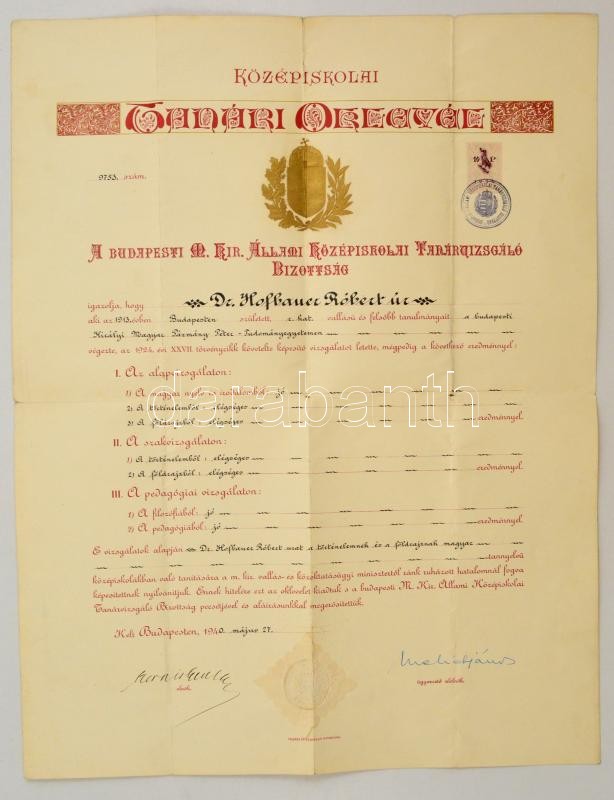 KÖZÉPISKOLAI
TANÁRI OKLEVÉL
9753. szám.
A BUDAPESTI M. KIR. ÁLLAMI KÖZÉPISKOLAI TANÁRVIZSGÁLÓ
BIZOTTSÁG
igazolja, hogy Dr. Hofbauer Róbert úr
aki az 1913. évben Budapesten született, r. kat. vallású és felsőbb tanulmányait a budapesti
Királyi Magyar Pázmány Péter-Tudományegyetemen
végezte, az 1924. évi XXVII. törvénycikk követelte képesítő vizsgálatot letette, mégpedig a következő eredménnyel:
I. Az alapvizsgálaton:
1) A magyar nyelv és irodalomból: jó
2) A történelemből: elégséges
3) A földrajzból: elégséges eredménnyel.
II. A szakvizsgálaton:
1) A történelemből: elégséges
2) A földrajzból: elégséges eredménnyel.
III. A pedagógiai vizsgálaton:
1) A filozófiából: jó
2) A pedagógiából: jó eredménnyel.
E vizsgálatok alapján Dr. Hofbauer Róbert urat a történelemnek és a földrajznak magyar
tannyelvű
középiskolákban való tanítására a m. kir. vallás- és közoktatásügyi minisztertől ránk ruházott hatalomnál fogva
képesítettnek nyilvánítjuk. Ennek hitelére ezt az oklevelet kiadtuk s a budapesti M. Kir. Állami Középiskolai
Tanárvizsgáló Bizottság pecsétjével és aláírásunkkal megerősítettük.
Kelt Budapesten, 1940. május 27.
elnök.
ügyvezető alelnök.
darabanth